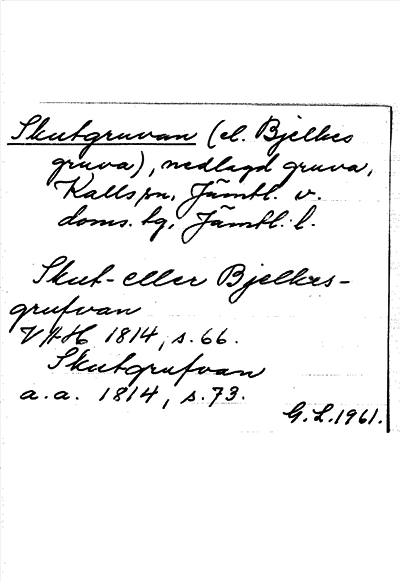 Skutgruvan (el. Bjelkes
gruva), nedlagd gruva,
Kalls sn, Jämtl. v.
doms. tg, Jämtl. l.
Skut- eller Bjelkes-
grufvan
VAH 1814, s. 66.
Skutgrufvan
a. a. 1814, s. 73.
G. L. 1961.